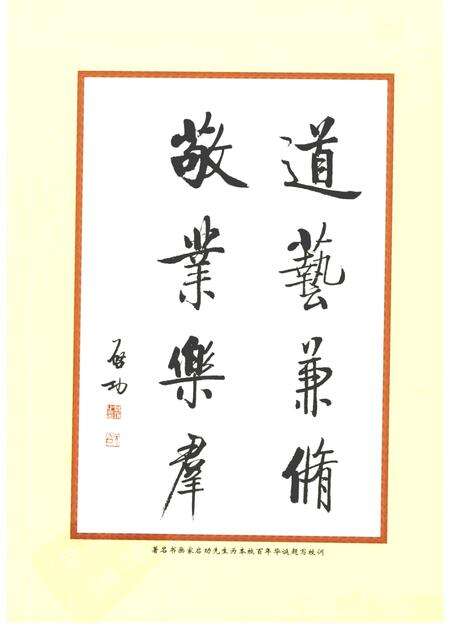 道藝兼脩
敬業樂羣
启功
著名书画家启功先生为本校百年华诞题写校训